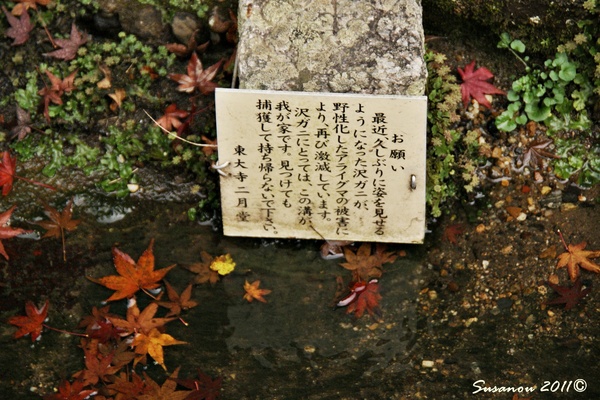 お願い
最近久しぶりに姿を見せる
ようになった沢ガニが、
野性化したアライグマの被害に
より、再び激減しています。
沢ガニにとっては、この溝が、
我が家です。見つけても
捕獲して持ち帰らないで下さい。
東大寺 二月堂
Susanow 2011©